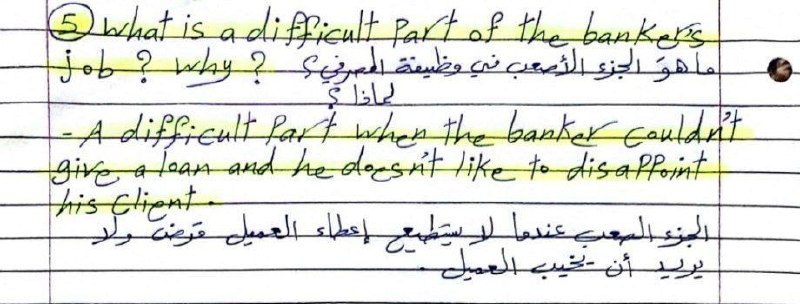 5 What is a difficult Part of the banker's
job ? Why ? ما هو الجزء الأصعب في وظيفة المصرفي ؟
لماذا ؟
- A difficult Part when the banker couldn't
give a loan and he doesn't like to disappoint
his Client .
الجزء الصعب عندما لا يستطيع إعطاء العميل قرض ولا
يريد أن يخيب العميل .